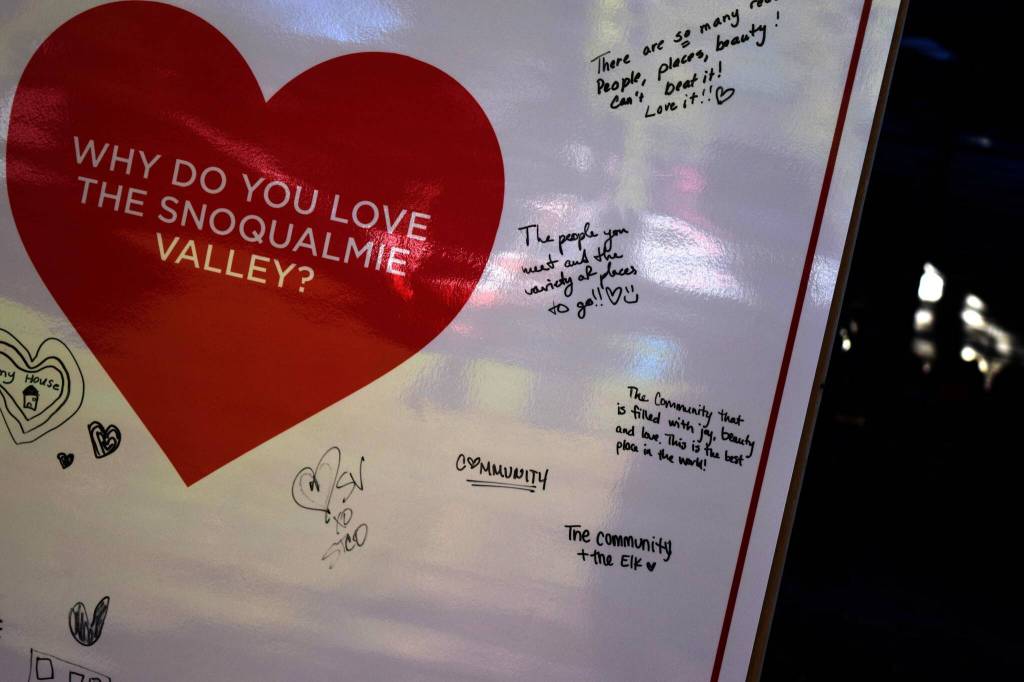 WHY DO YOU LOVE
THE SNOQUALMIE
VALLEY?
There are so many
People, places, beauty!
Can't beat it!
Love it!!
The people you
meet and the
variety of places
to go!!
The Community that
is filled with joy, beauty
and love. This is the best
place in the world!
my House
COMMUNITY
SV
XO
The community
+ the Elk